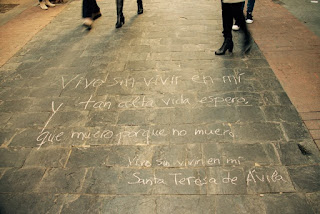 Vivo sin vivir en mí
y tan alta vida espero,
que muero porque no muero.
Vivo sin vivir en mí
Santa Teresa de Ávila